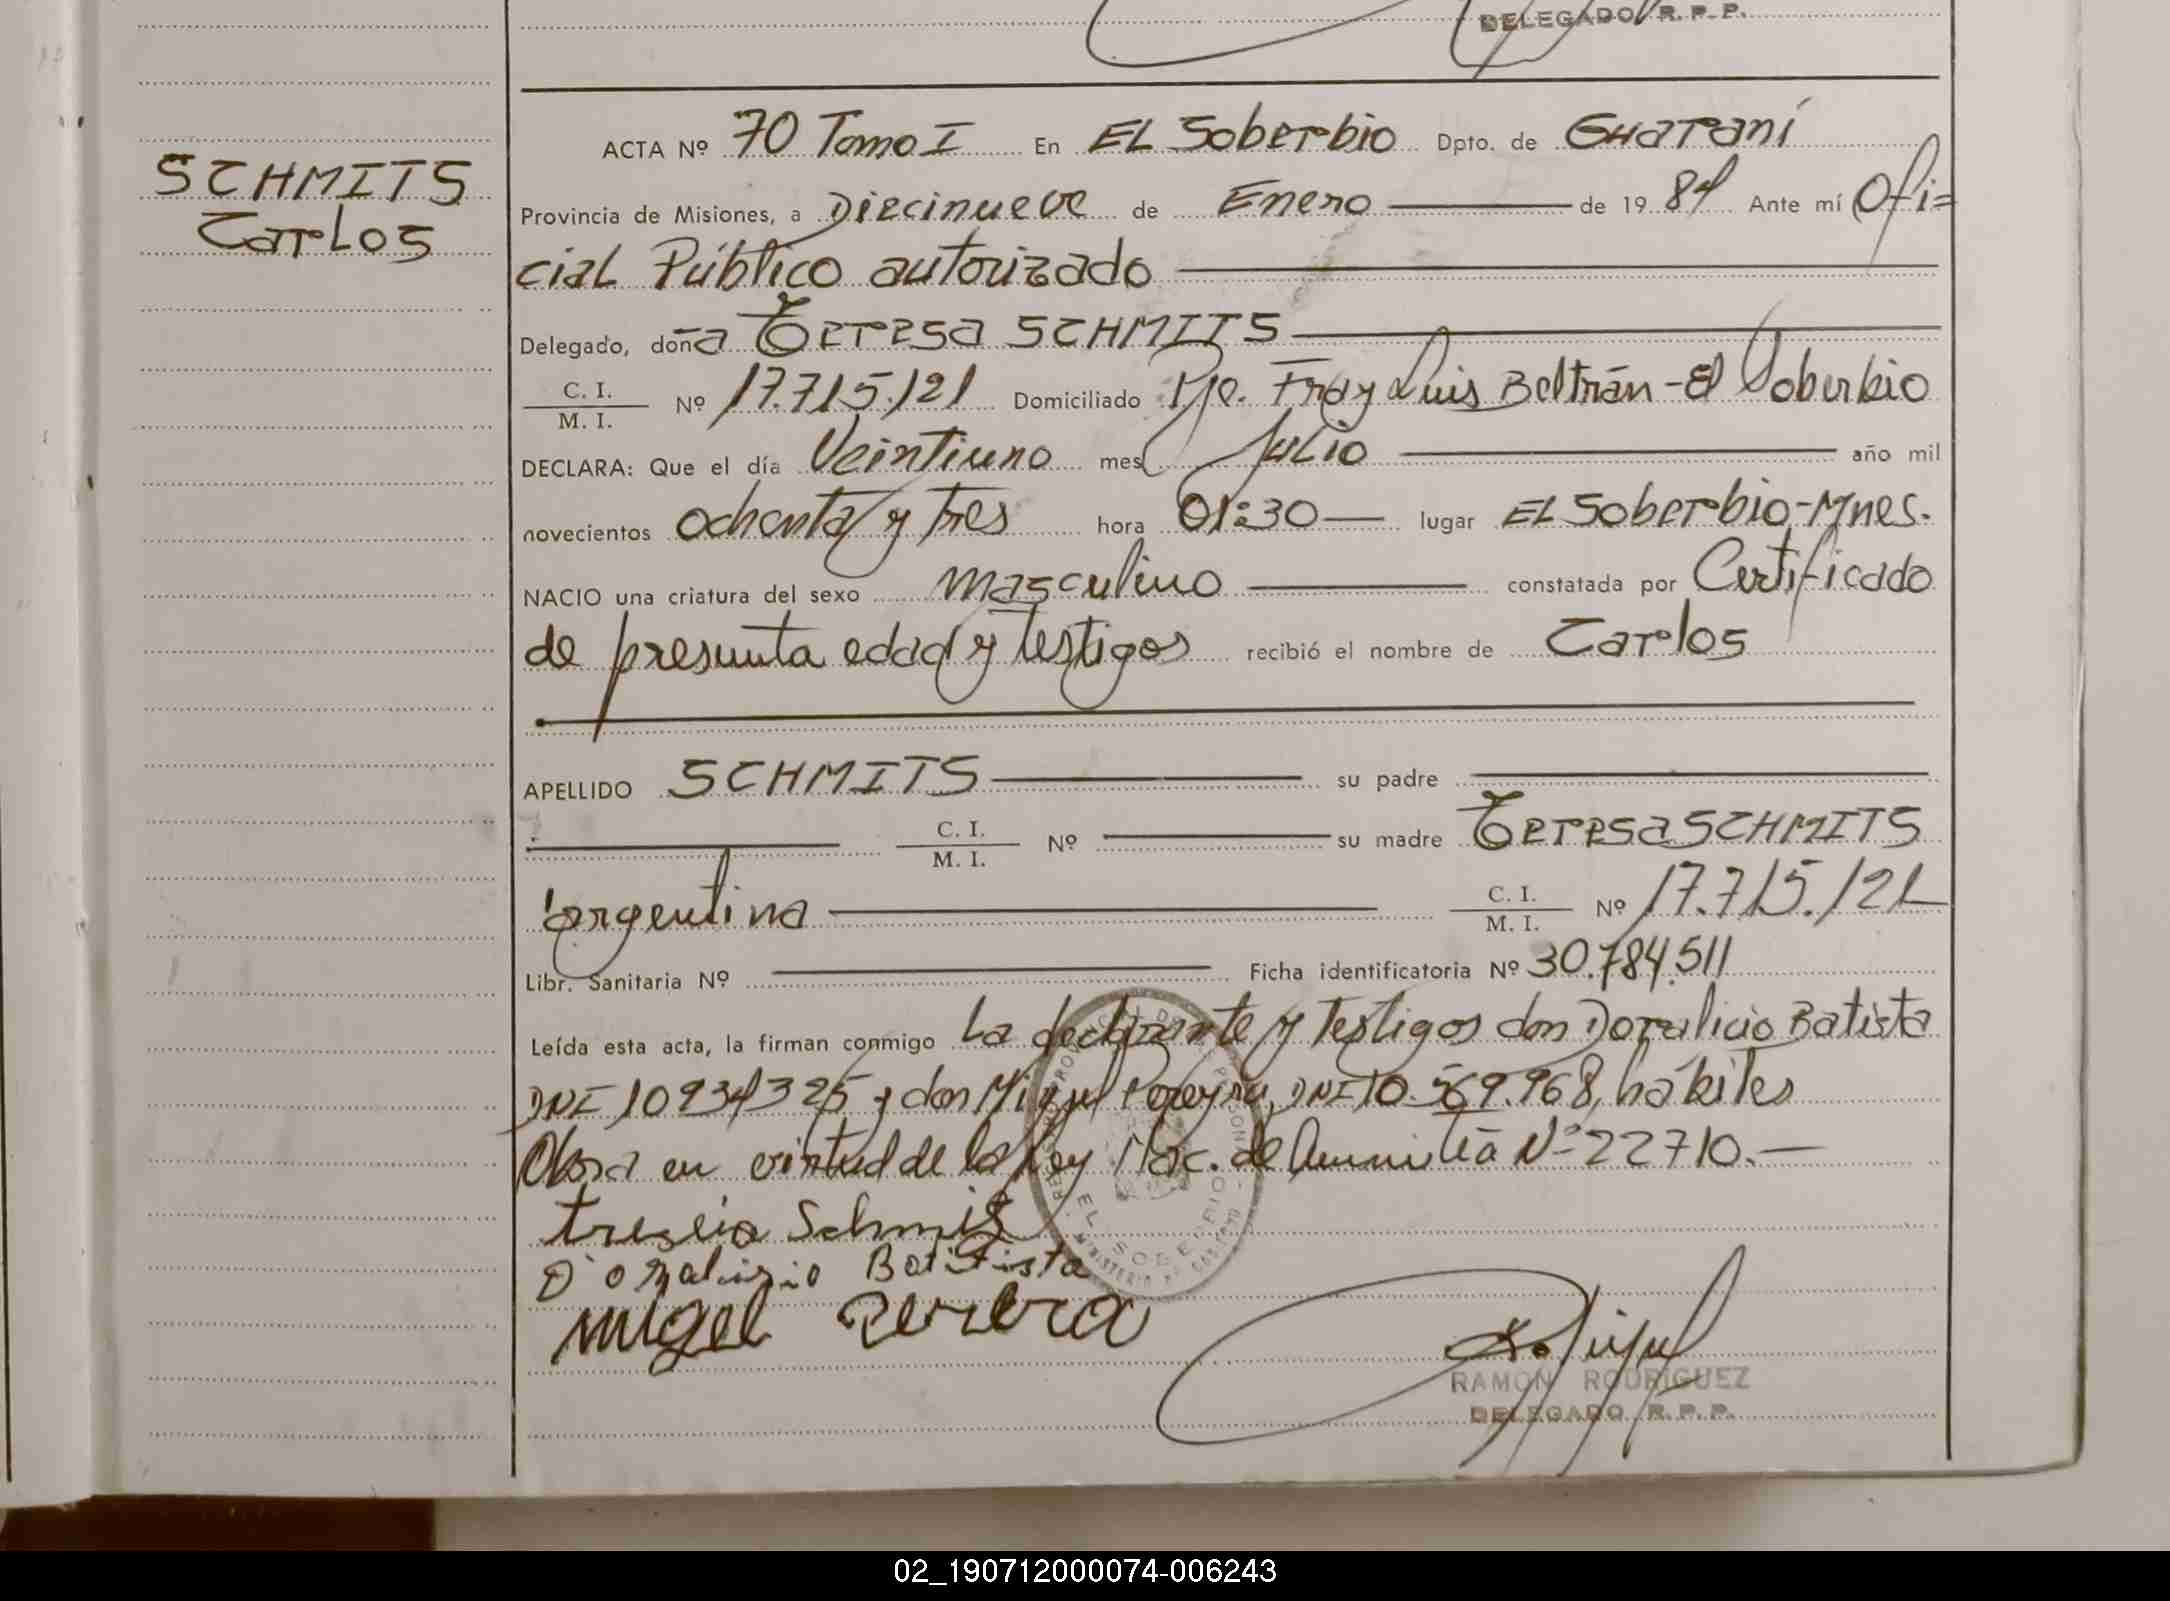 DELEGADO R. P. P.
SCHMITS
Carlos
ACTA Nº 70 Tomo I En EL Soberbio Dpto. de Guaraní
Provincia de Misiones, a Diecinueve de Enero de 1984 Ante mí Ofi=
cial Público autorizado
Delegado, doña Teresa SCHMITS
C. I. / M. I. Nº 17.715.121 Domiciliado Pje. Fray Luis Beltrán - El Soberbio
DECLARA: Que el día Veintiuno mes Julio año mil
novecientos ochenta y tres hora 01:30 lugar EL Soberbio-Mnes.
NACIO una criatura del sexo masculino constatada por Certificado
de presunta edad y Testigos recibió el nombre de Carlos
APELLIDO SCHMITS su padre
C. I. / M. I. Nº su madre Teresa SCHMITS
argentina C. I. / M. I. Nº 17.715.121
Libr. Sanitaria Nº Ficha identificatoria Nº 30.784.511
Leída esta acta, la firman conmigo La declarante y Testigos don Doralicio Batista
DNI 10934325 y don Miguel Pereyra, DNI 10.569.968, hábiles
Obra en virtud de la Ley Nac. de Amnistía Nº 22710.—
Treseia Schmits
Doralizio Batista
Migel Pereira
EL SOBERBIO
RAMON RODRIGUEZ
DELEGADO R. P. P.
02_190712000074-006243